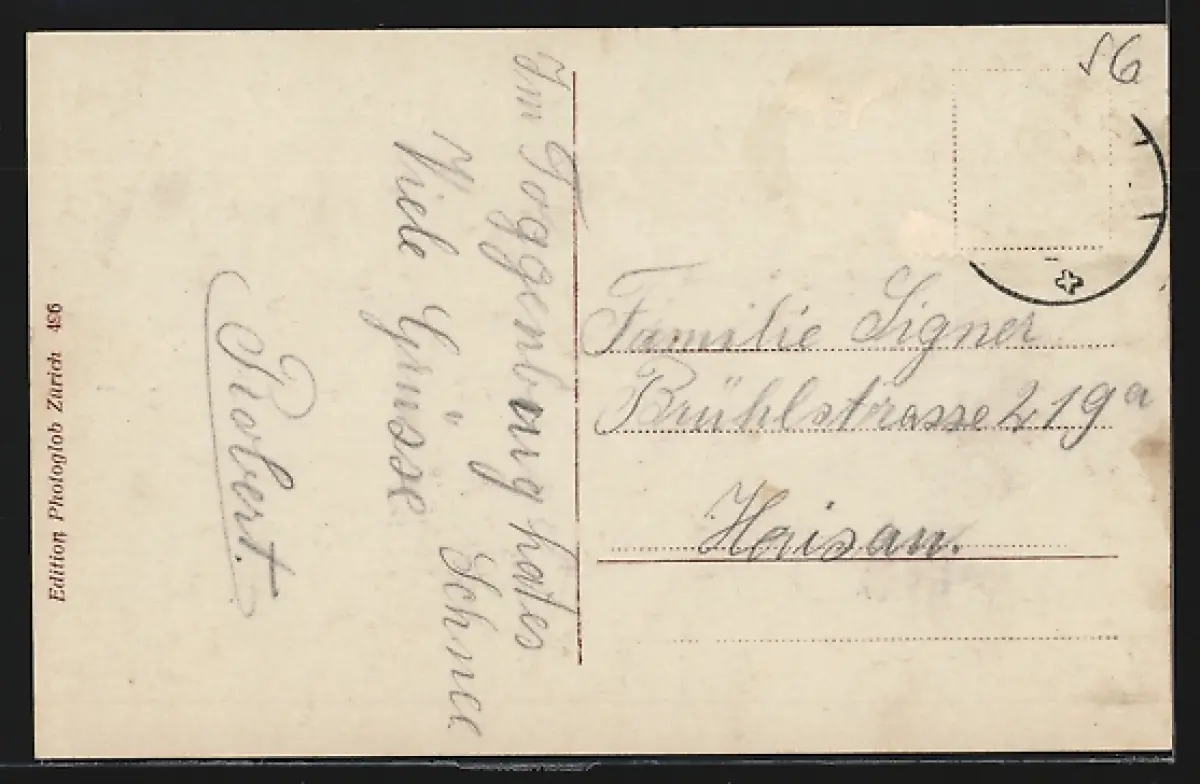 Im Toggenburg hates
Schnee
Viele Grüsse
Robert.
Familie Signer
Brühlstrasse 219a
Herisau.
56
Edition Photoglob Zürich 496